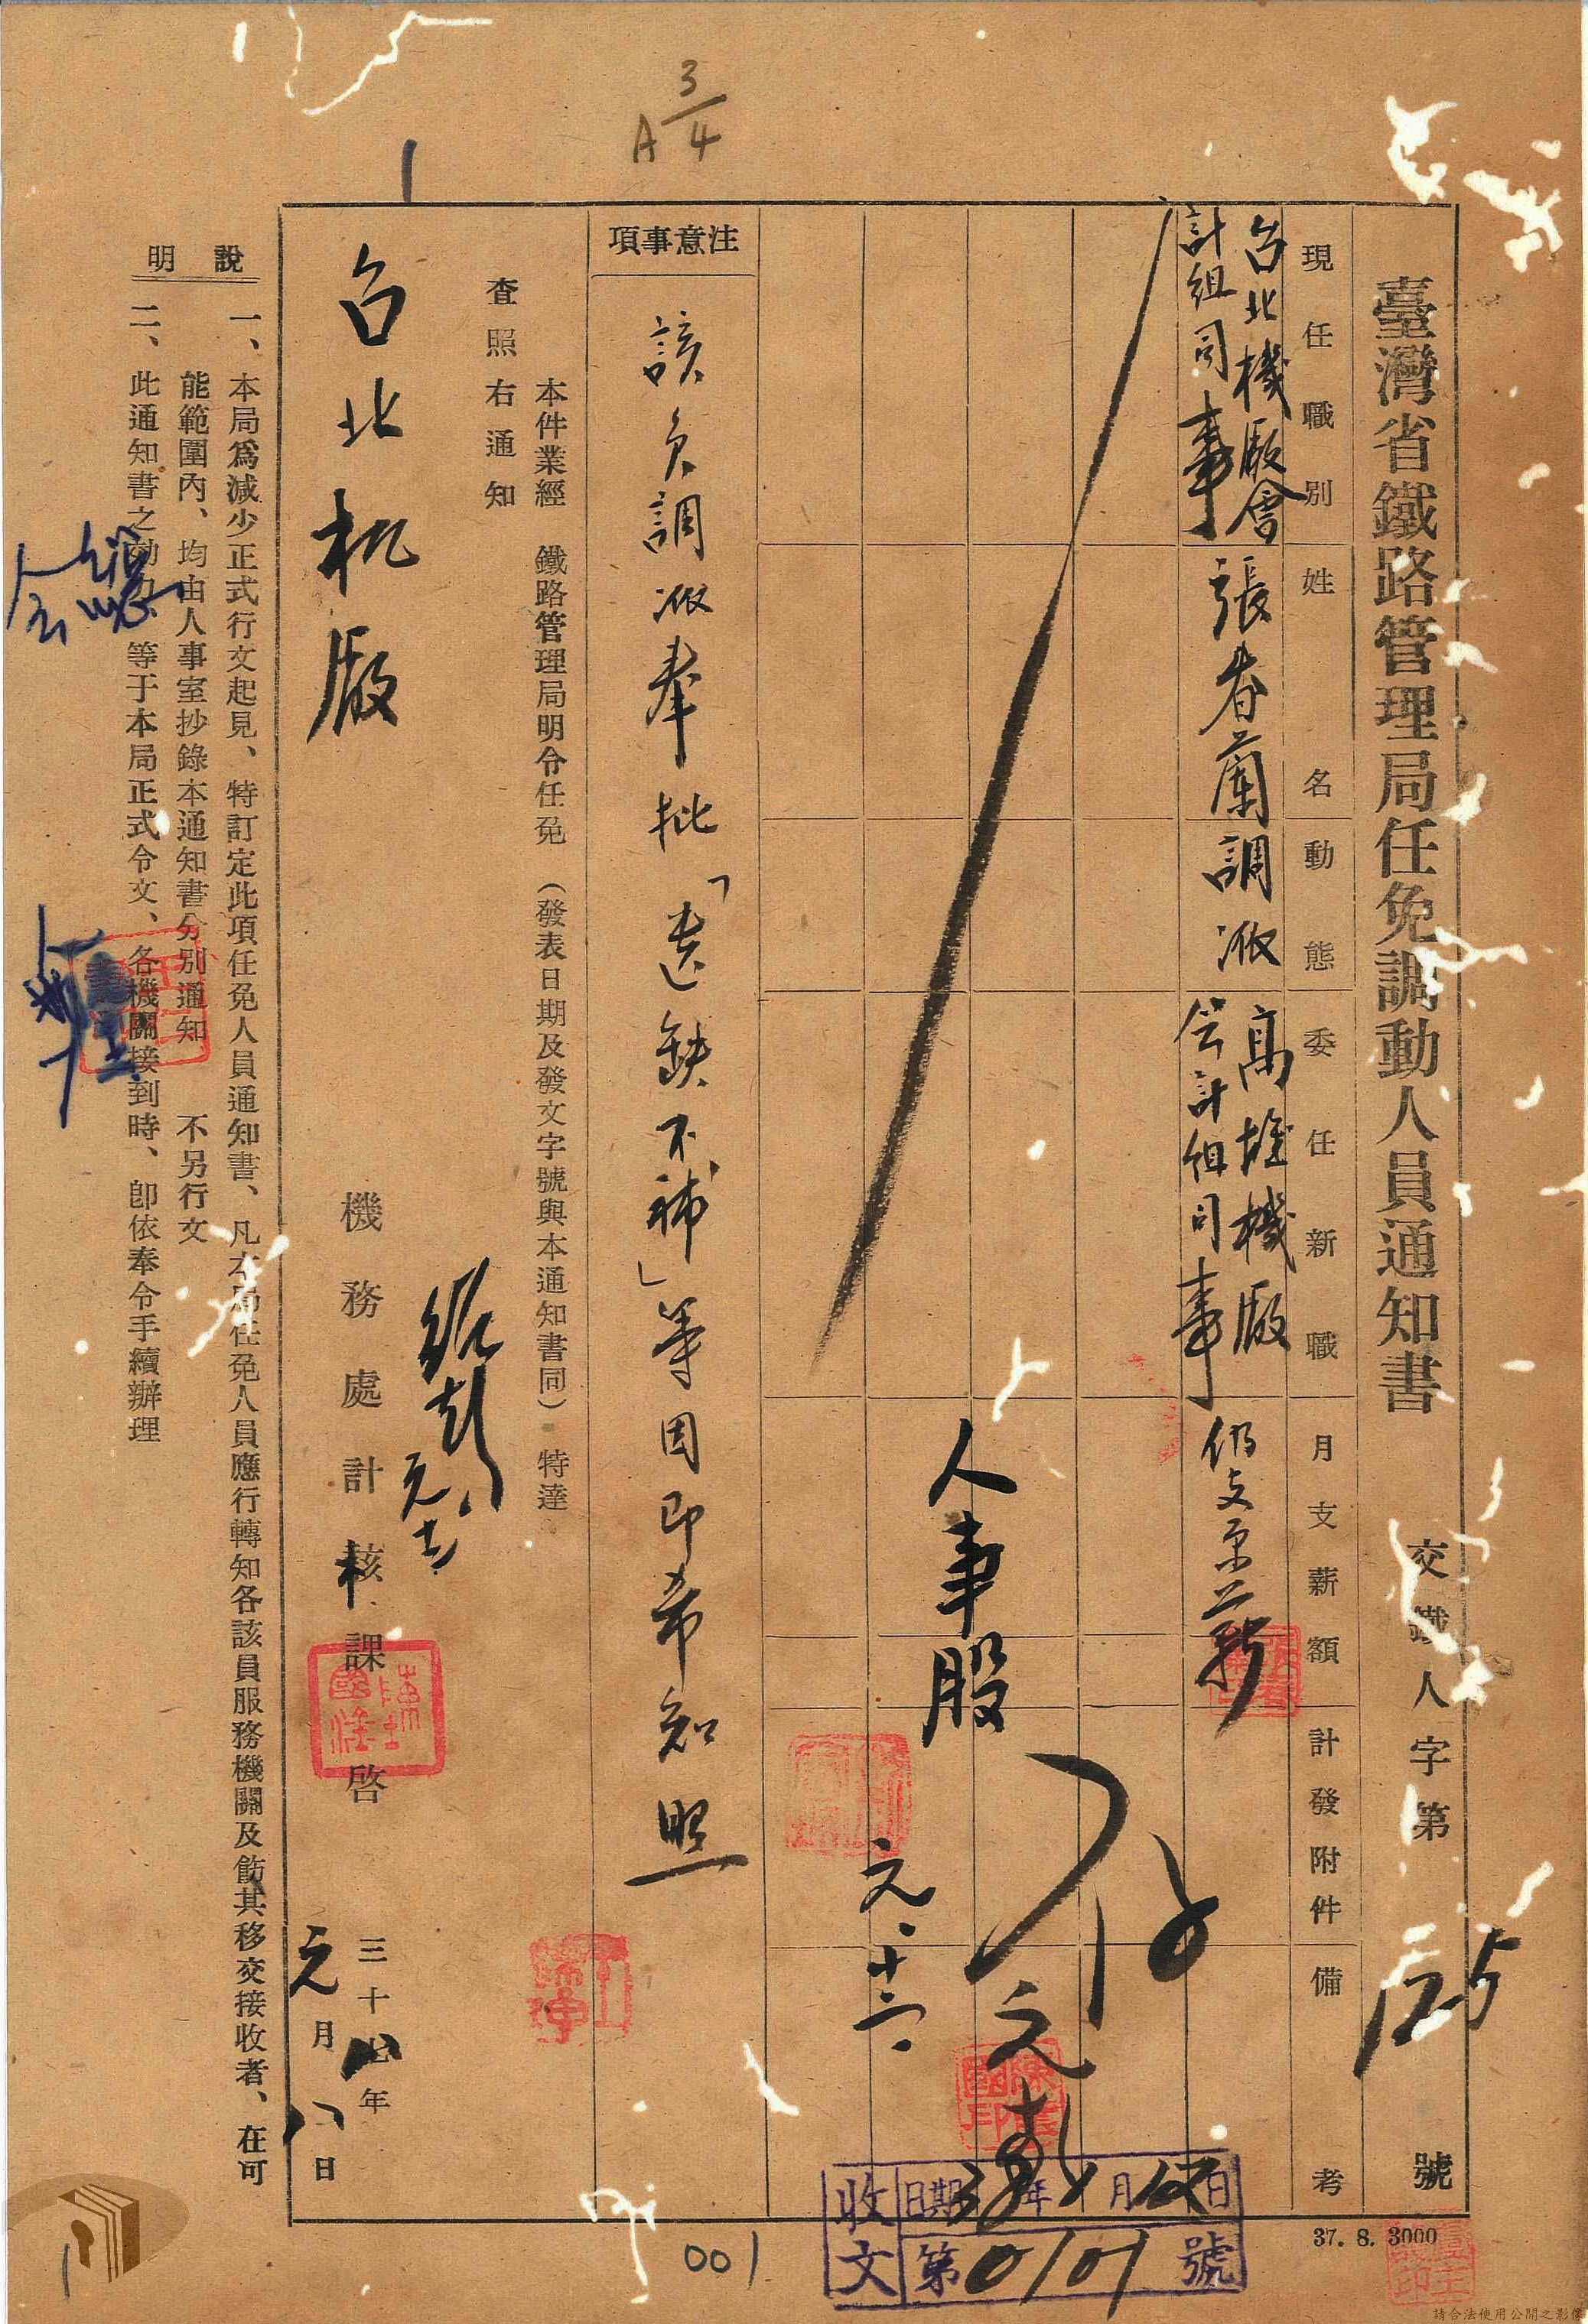 臺灣省鐵路管理局任免調動人員通知書
交鐵人字第125號
現任職別
姓名
動態
委任新職
月支薪額
計發附件
備考
台北機廠會
計組司事
張春蘭
調派
高雄機廠
會計組司事
仍支原薪
人事股
元.十二.
注意事項
該員調派奉批「遺缺不補」等因即希知照
本件業經 鐵路管理局明令任免 (發表日期及發文字號與本通知書同) 特達
查照右通知
台北机廠
機務處計核課啓
三十八年
元月八日
說明
一、本局爲減少正式行文起見、特訂定此項任免人員通知書、凡本局任免人員應行轉知各該員服務機關及飭其移交接收者、在可
能範圍內、均由人事室抄錄本通知書分別通知 不另行文
二、此通知書之効力、等于本局正式令文、各機關接到時、卽依奉令手續辦理
A 3/4
收文
日期 年 月 日
第0101號
001
37. 8. 3000
請合法使用公開之影像